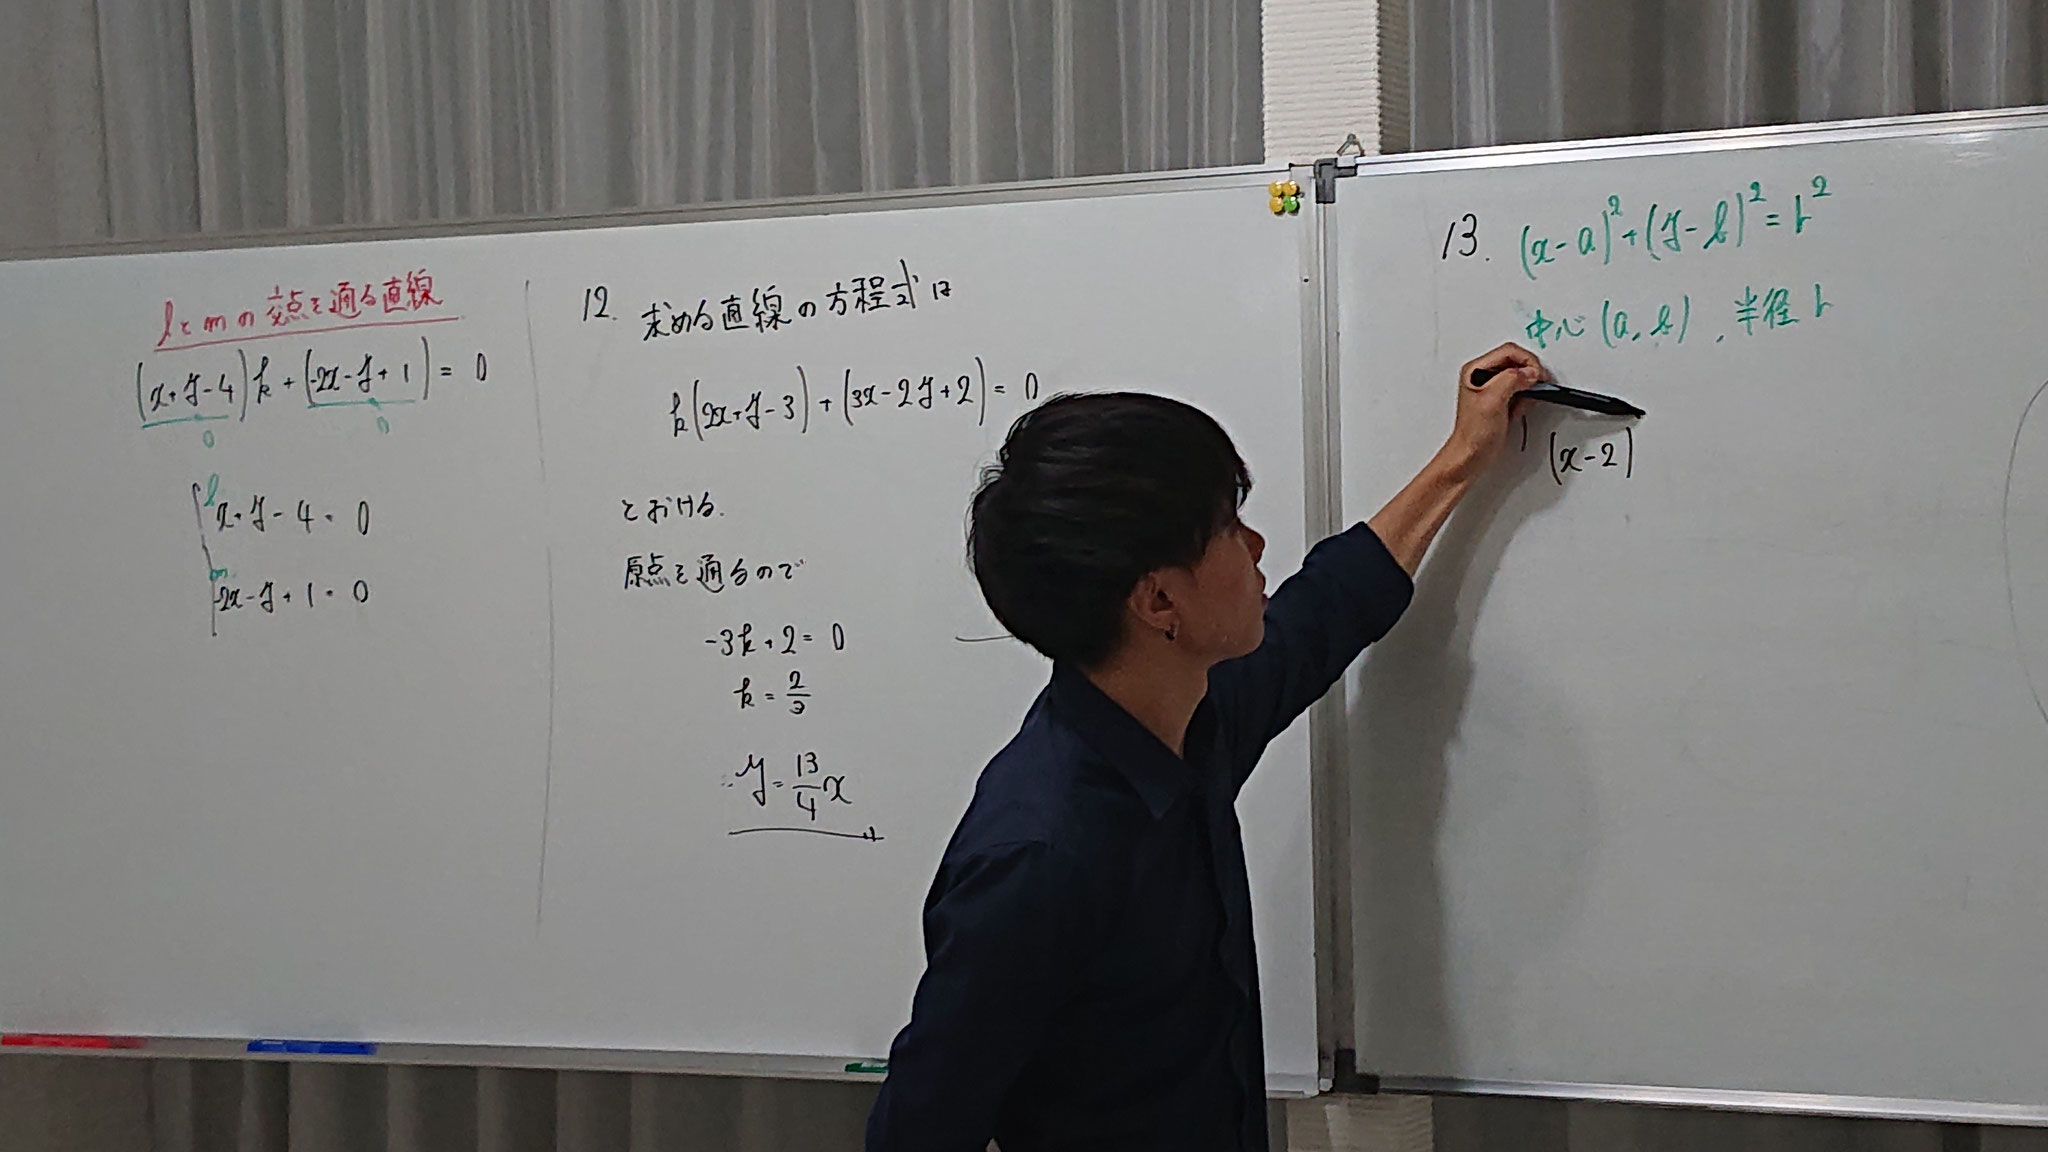 lとmの交点を通る直線
(x+y-4)k+(-2x-y+1)=0
0 0
l x+y-4=0
m -2x-y+1=0
12. 求める直線の方程式は
k(2x+y-3)+(3x-2y+2)=0
とおける.
原点を通るので
-3k+2=0
k=2/3
∴y=13/4x
13. (x-a)²+(y-b)²=r²
中心(a,b),半径r
(x-2)